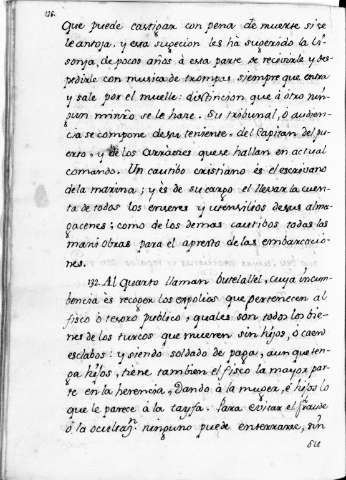 136.
Que puede castigar con pena de muerte si se
le antoja. y esta sugecion les hà sugerido la li-
sonja, de pocos años à esta parte se recivirle y des-
pedirle con musica de trompas siempre que entra
y sale por el muelle: distincion que à otro nin-
gun minro se le hace. Su tribunal, ò audien-
cia se compone de su teniente, del Capitan del pu-
erto, y de los Arraezes que se hallan en actual
comando. Un cautibo cristiano es el escrivano
de la marina; y es de su cargo el llevar la cuen-
ta de todos los enseres y utensilios de sus alma-
gacenes; como de los demas cautibos todas las
maniobras para el apresto de las embarcacio-
nes.
132. Al quarto llaman butelallel, cuya incum-
bencia es recoger los expolios que pertenecen al
fisco ò tesoro publico, quales son todos los bie-
nes de los turcos que mueren sin hijos, ò caen
esclabos: y siendo soldado de paga, aunque ten-
ga hijos, tiene tambien el fisco la mayor par-
te en la herencia, Dando à la muger, è hijos lo
que le parece à la tayfa. Para evitar el fraude
ò la ocultazn. ninguno puede enterrarse, sin
su